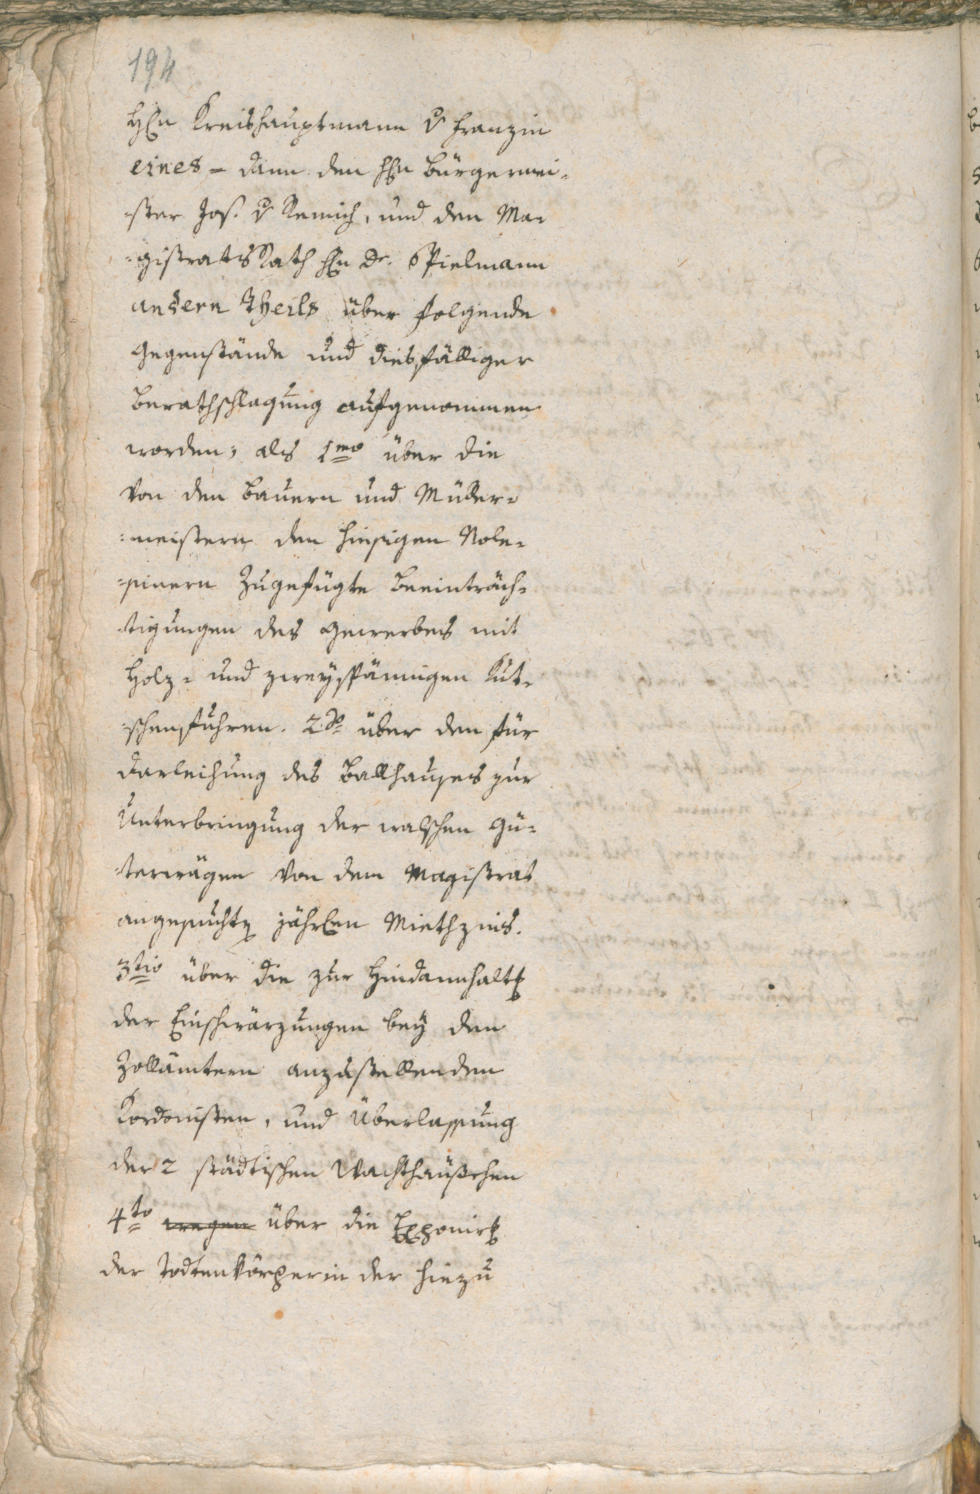 194
HEn Kreishauptmann v Franzin
eines - dann den HEn Bürgermei-
-ster Jos. v Remich, und den Ma-
-gistratsRath HEn Dr. Spielmann
andern Theils über folgende
Gegenstände und diesfälliger
Berathschlagung aufgenommen
worden; als 1mo über die
von den Bauern und Müller-
-meistern den hiesigen Role-
-sinern zugefügte Beeinträch-
-tigungen des Gewerbes mit
Holz- und zweyspännigen Kut-
-schenfuhren. 2do über den für
Darleihung des Ballhauses zur
Unterbringung der walschen Gü-
-terwägen von dem Magistrat
angesuchtn jährlen Miethzins.
3tio über die zur Hindannhaltg
der Einschwärzungen bey den
Zollämtern anzustellenden
Kordonisten, und Überlassung
der 2 städtischen Wachthäuschen
4to wegen über die Exponirg
der Todtenkörper in der hiezu